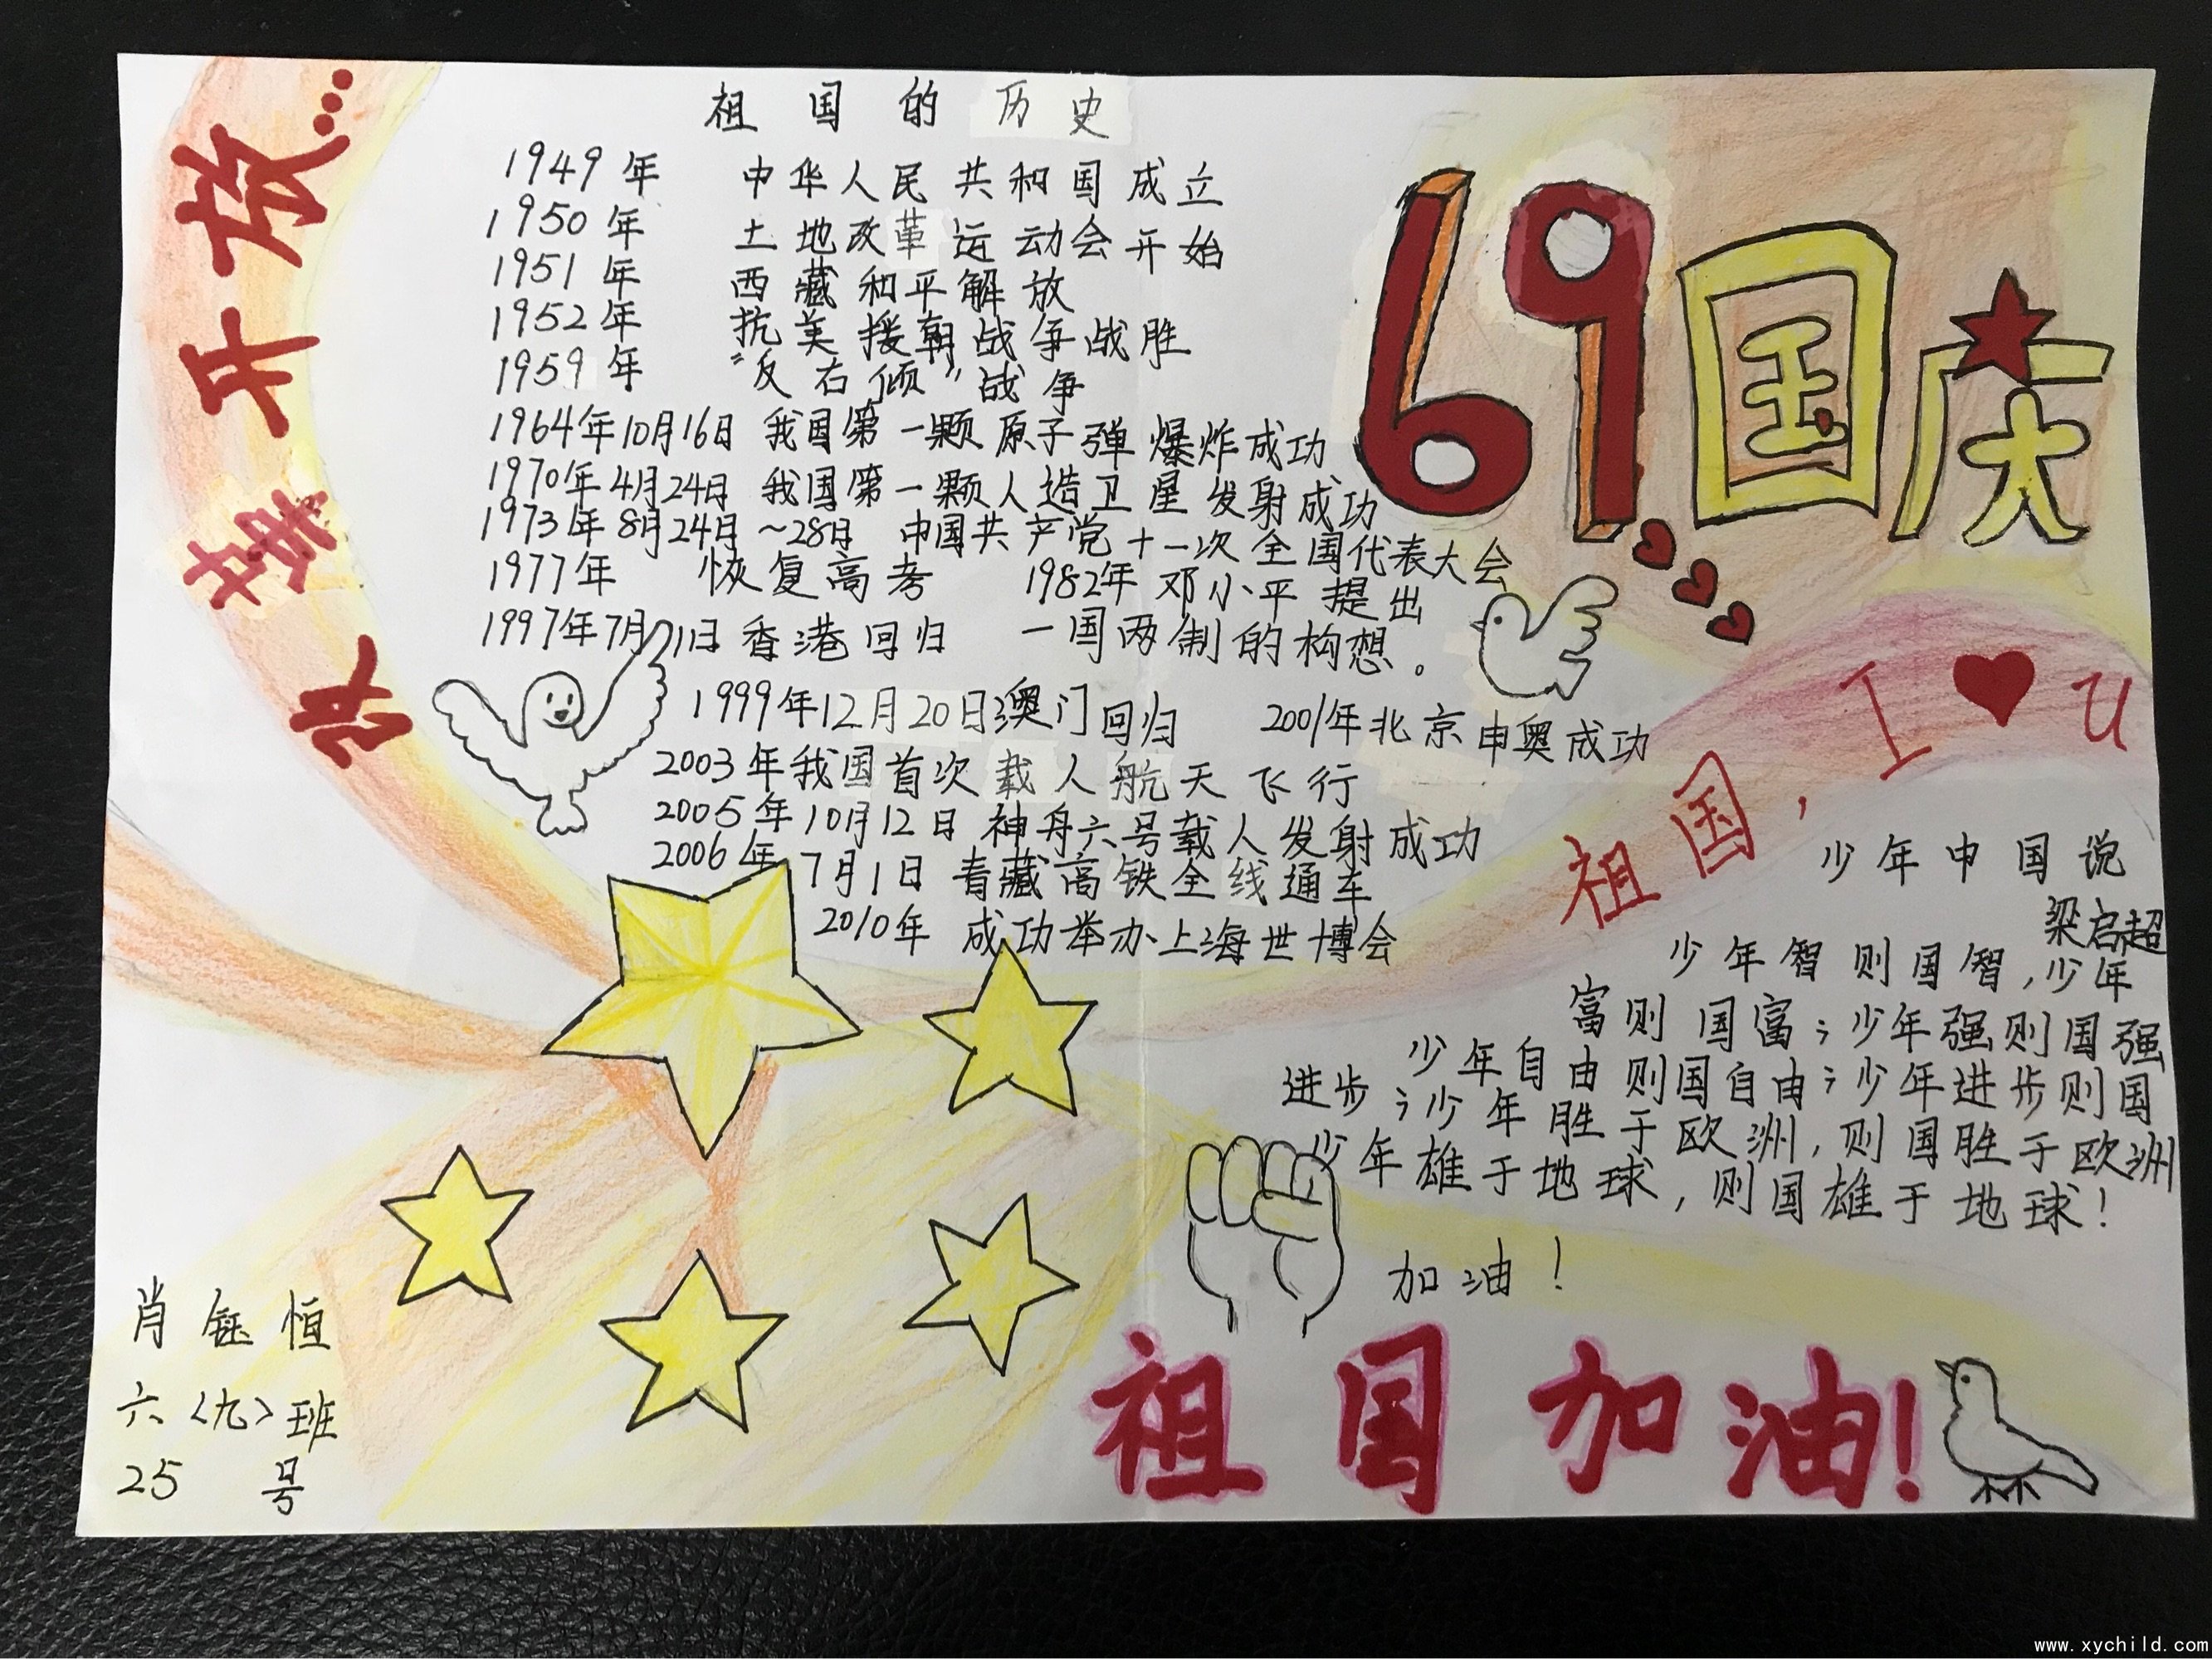 改革开放...
祖国的历史
1949年 中华人民共和国成立
1950年 土地改革运动会开始
1951年 西藏和平解放
1952年 抗美援朝战争战胜
1959年 “反右倾”战争
1964年10月16日 我国第一颗原子弹爆炸成功
1970年4月24日 我国第一颗人造卫星发射成功
1973年8月24日~28日 中国共产党十一次全国代表大会
1977年 恢复高考 1982年邓小平提出
1997年7月1日香港回归 一国两制的构想。
1999年12月20日澳门回归 2001年北京申奥成功
2003年我国首次载人航天飞行
2005年10月12日神舟六号载人发射成功
2006年7月1日 青藏高铁全线通车
2010年 成功举办上海世博会
69国庆
祖国，I ♥ u
少年中国说
梁启超
少年智则国智，少年
富则国富；少年强则国强
少年自由则国自由；少年进步则国
进步；少年胜于欧洲，则国胜于欧洲
少年雄于地球，则国雄于地球！
加油！
祖国加油！
肖钰恒
六〈九〉班
25号
www.xychild.com